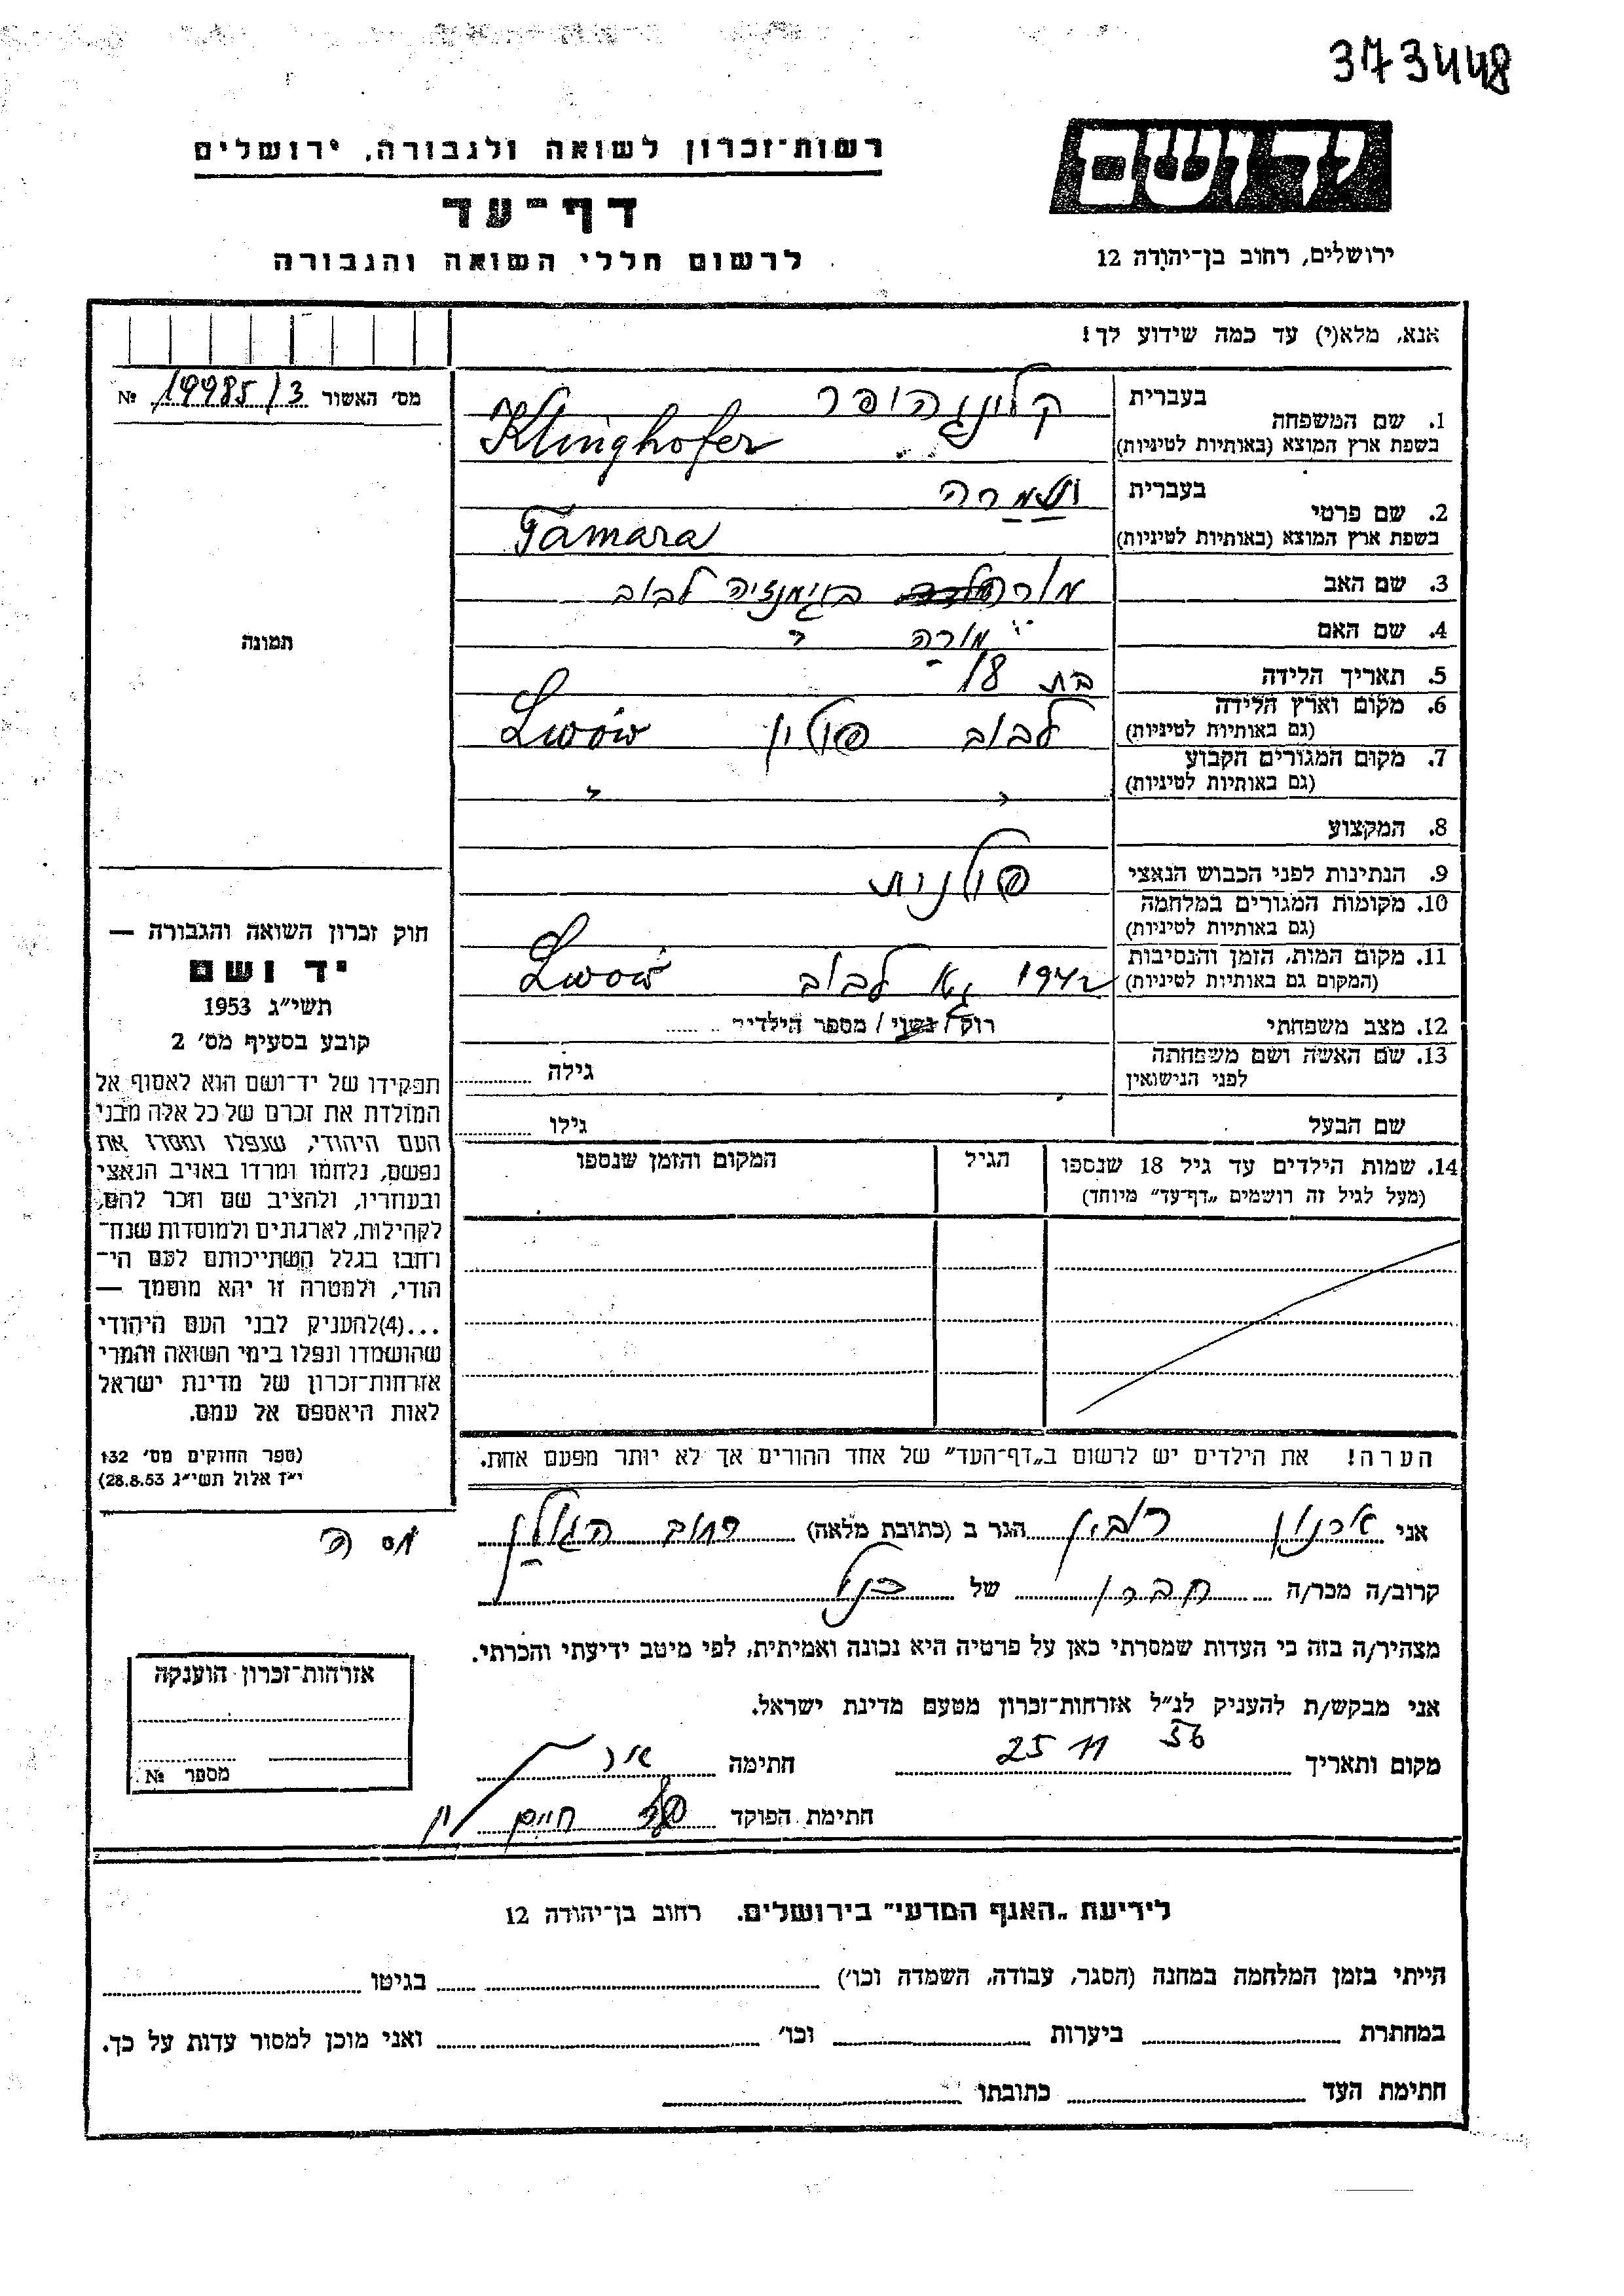 373448
יד ושם
רשות־זכרון לשואה ולגבורה, ירושלים
דף־עד
ירושלים, רחוב בן־יהודה 12
לרשום חללי השואה והגבורה
אנא, מלא(י) עד כמה שידוע לך!
מס׳ האשור 19985/3 №
תמונה
1. שם המשפחה
בעברית קלינגהופר
בשפת ארץ המוצא (באותיות לטיניות) Klinghofer
2. שם פרטי
בעברית תמרה
בשפת ארץ המוצא (באותיות לטיניות) Tamara
3. שם האב מורה בגימנזיה לבוב
4. שם האם מורה "
5. תאריך הלידה בת 18
6. מקום וארץ הלידה
(גם באותיות לטיניות) לבוב פולין Lwów
7. מקום המגורים הקבוע
(גם באותיות לטיניות) " "
8. המקצוע
9. הנתינות לפני הכבוש הנאצי פולנית
10. מקומות המגורים במלחמה
(גם באותיות לטיניות)
11. מקום המות, הזמן והנסיבות
(המקום גם באותיות לטיניות) 1942 לבוב Lwów
12. מצב משפחתי רוק/נשוי/מספר הילדים
13. שם האשה ושם משפחתה
לפני הנישואין גילה
שם הבעל גילו
14. שמות הילדים עד גיל 18 שנספו הגיל המקום והזמן שנספו
(מעל לגיל זה רושמים „דף־עד״ מיוחד)
הערה! את הילדים יש לרשום ב„דף־העד״ של אחד ההורים אך לא יותר מפעם אחת.
חוק זכרון השואה והגבורה —
יד ושם
תשי״ג 1953
קובע בסעיף מס׳ 2
תפקידו של יד־ושם הוא לאסוף אל
המולדת את זכרם של כל אלה מבני
העם היהודי, שנפלו ומסרו את
נפשם, נלחמו ומרדו באויב הנאצי
ובעוזריו, ולהציב שם וזכר להם,
לקהילות, לארגונים ולמוסדות שנח־
רחבו בגלל השתייכותם לעם הי־
הודי, ולמטרה זו יהא מוסמך —
...(4)להעניק לבני העם היהודי
שהושמדו ונפלו בימי השואה והמרי
אזרחות־זכרון של מדינת ישראל
לאות היאספם אל עמם.
(ספר החוקים מס׳ 132
י״ז אלול תשי״ג 28.8.53)
אני ארנון רובין הגר ב (כתובת מלאה) רחוב הגולן
קרוב/ה מכר/ה חברו של כנ"ל
מצהיר/ה בזה כי העדות שמסרתי כאן על פרטיה היא נכונה ואמיתית, לפי מיטב ידיעתי והכרתי.
אני מבקש/ת להעניק לנ״ל אזרחות־זכרון מטעם מדינת ישראל.
מקום ותאריך 25 11 56 חתימה
חתימת הפוקד חיים
אזרחות־זכרון הוענקה
מספר №
לידיעת „האגף המדעי״ בירושלים. רחוב בן־יהודה 12
הייתי בזמן המלחמה במחנה (הסגר, עבודה, השמדה וכו׳) בגיטו
במחתרת ביערות וכו׳ ואני מוכן למסור עדות על כך.
חתימת העד כתובתו